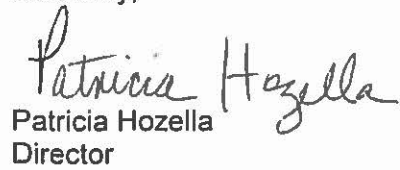 Patricia Hozella
Patricia Hozella
Director